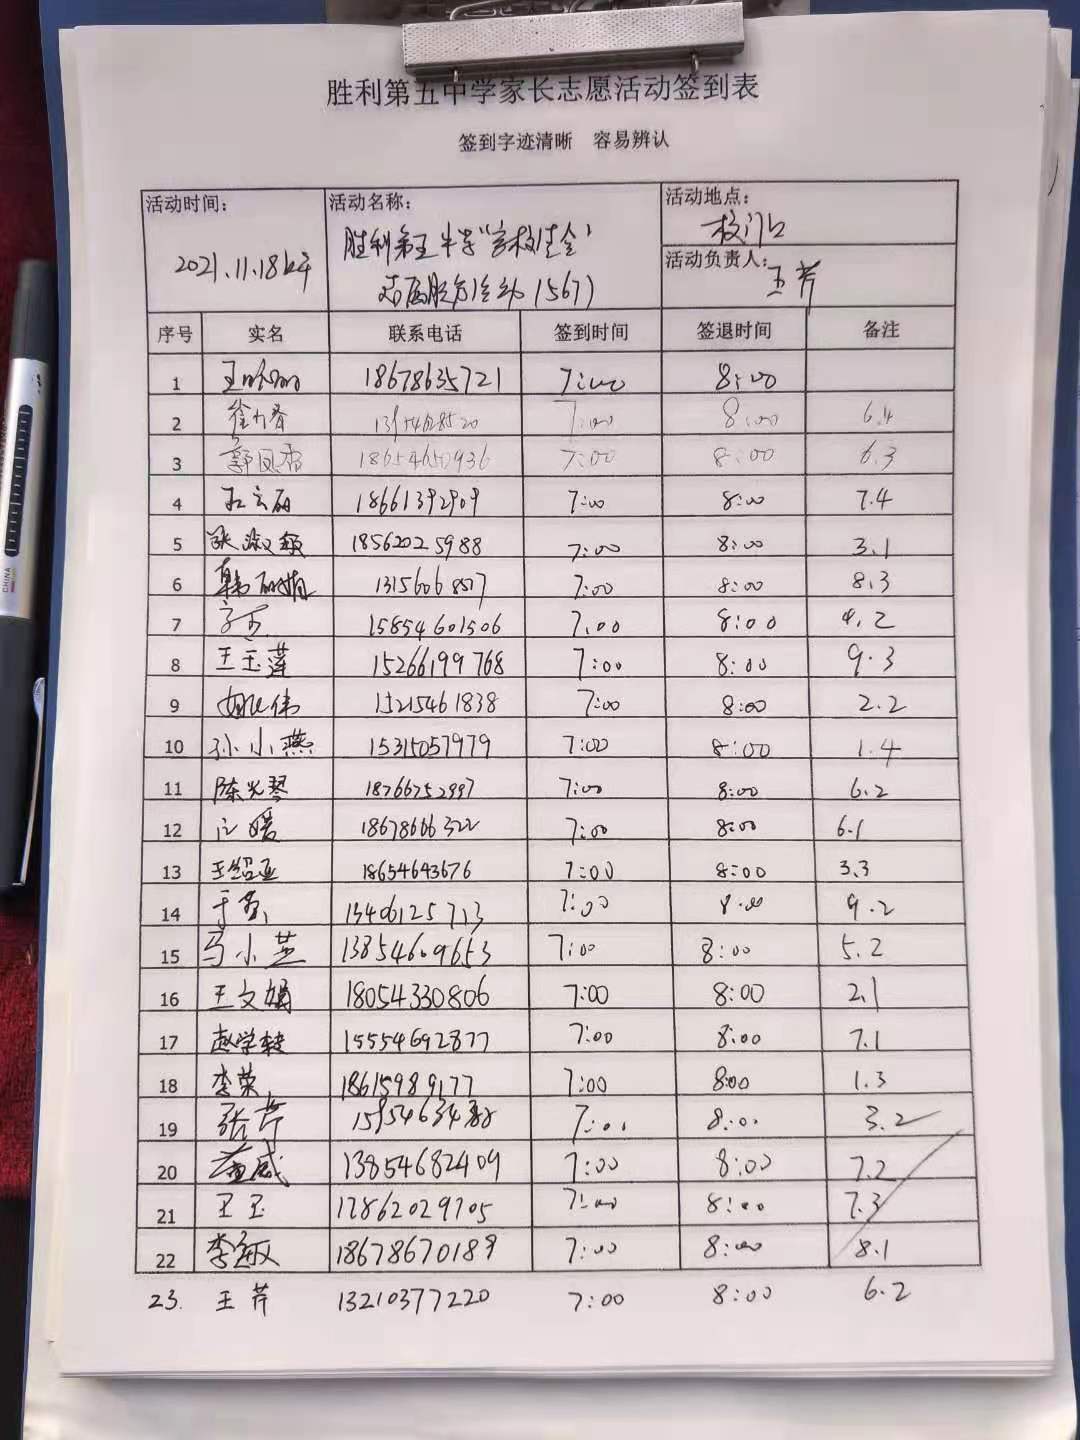 胜利第五中学家长志愿活动签到表
签到字迹清晰 容易辨认
活动时间: 活动名称: 活动地点:
2021.11.18 胜利第五中学"家校协会" 校门口
活动负责人: 王芹
(567)
序号 实名 联系电话 签到时间 签退时间 备注
1 18678635721 7:00 8:00
2 7:00 8:00 6.4
3 郭凤香 18654650936 7:00 8:00 6.3
4 18661392909 7:00 8:00 7.4
5 张淑颖 18562025988 7:00 8:00 3.1
6 韩丽娟 7:00 8:00 8.3
7 15854601506 7:00 8:00 4.2
8 王玉莲 15266199768 7:00 8:00 9.3
9 15215461838 7:00 8:00 2.2
10 孙小燕 15315057979 7:00 8:00 1.4
11 陈光琴 18766752997 7:00 8:00 6.2
12 18678666322 7:00 8:00 6.1
13 王绍亚 18654643676 7:00 8:00 3.3
14 13406125713 7:00 8:00 9.2
15 马小芝 13854609653 7:00 8:00 5.2
16 王文娟 18054330806 7:00 8:00 2.1
17 15554692877 7:00 8:00 7.1
18 李荣 18615989177 7:00 8:00 1.3
19 张芹 7:00 8:00 3.2
20 13854682409 7:00 8:00 7.2
21 王玉 17862029705 7:00 8:00 7.3
22 李敏 18678670189 7:00 8:00 8.1
23. 王芹 13210377220 7:00 8:00 6.2
CHINA